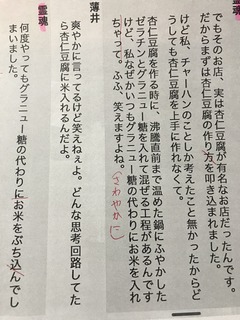 でもそのお店、実は杏仁豆腐が有名なお店だったんです。
だからまずは杏仁豆腐の作り方を叩き込まれました。
けど私、チャーハンのことしか考えたこと無かったからど
うしても杏仁豆腐を上手に作れなくて。
杏仁豆腐を作る時に、沸騰直前まで温めた鍋にふやかした
ゼラチンとグラニュー糖を入れて混ぜる工程があるんです
けど、私なぜかいつもグラニュー糖の代わりにお米を入れ
ちゃって。ふふ、笑えますよね。
(さわやかに)
薄井
爽やかに言ってるけど笑えねぇよ。どんな思考回路してた
ら杏仁豆腐に米入れるんだよ。
霊魂
何度やってもグラニュー糖の代わりにお米をぶち込んでし
まいました。